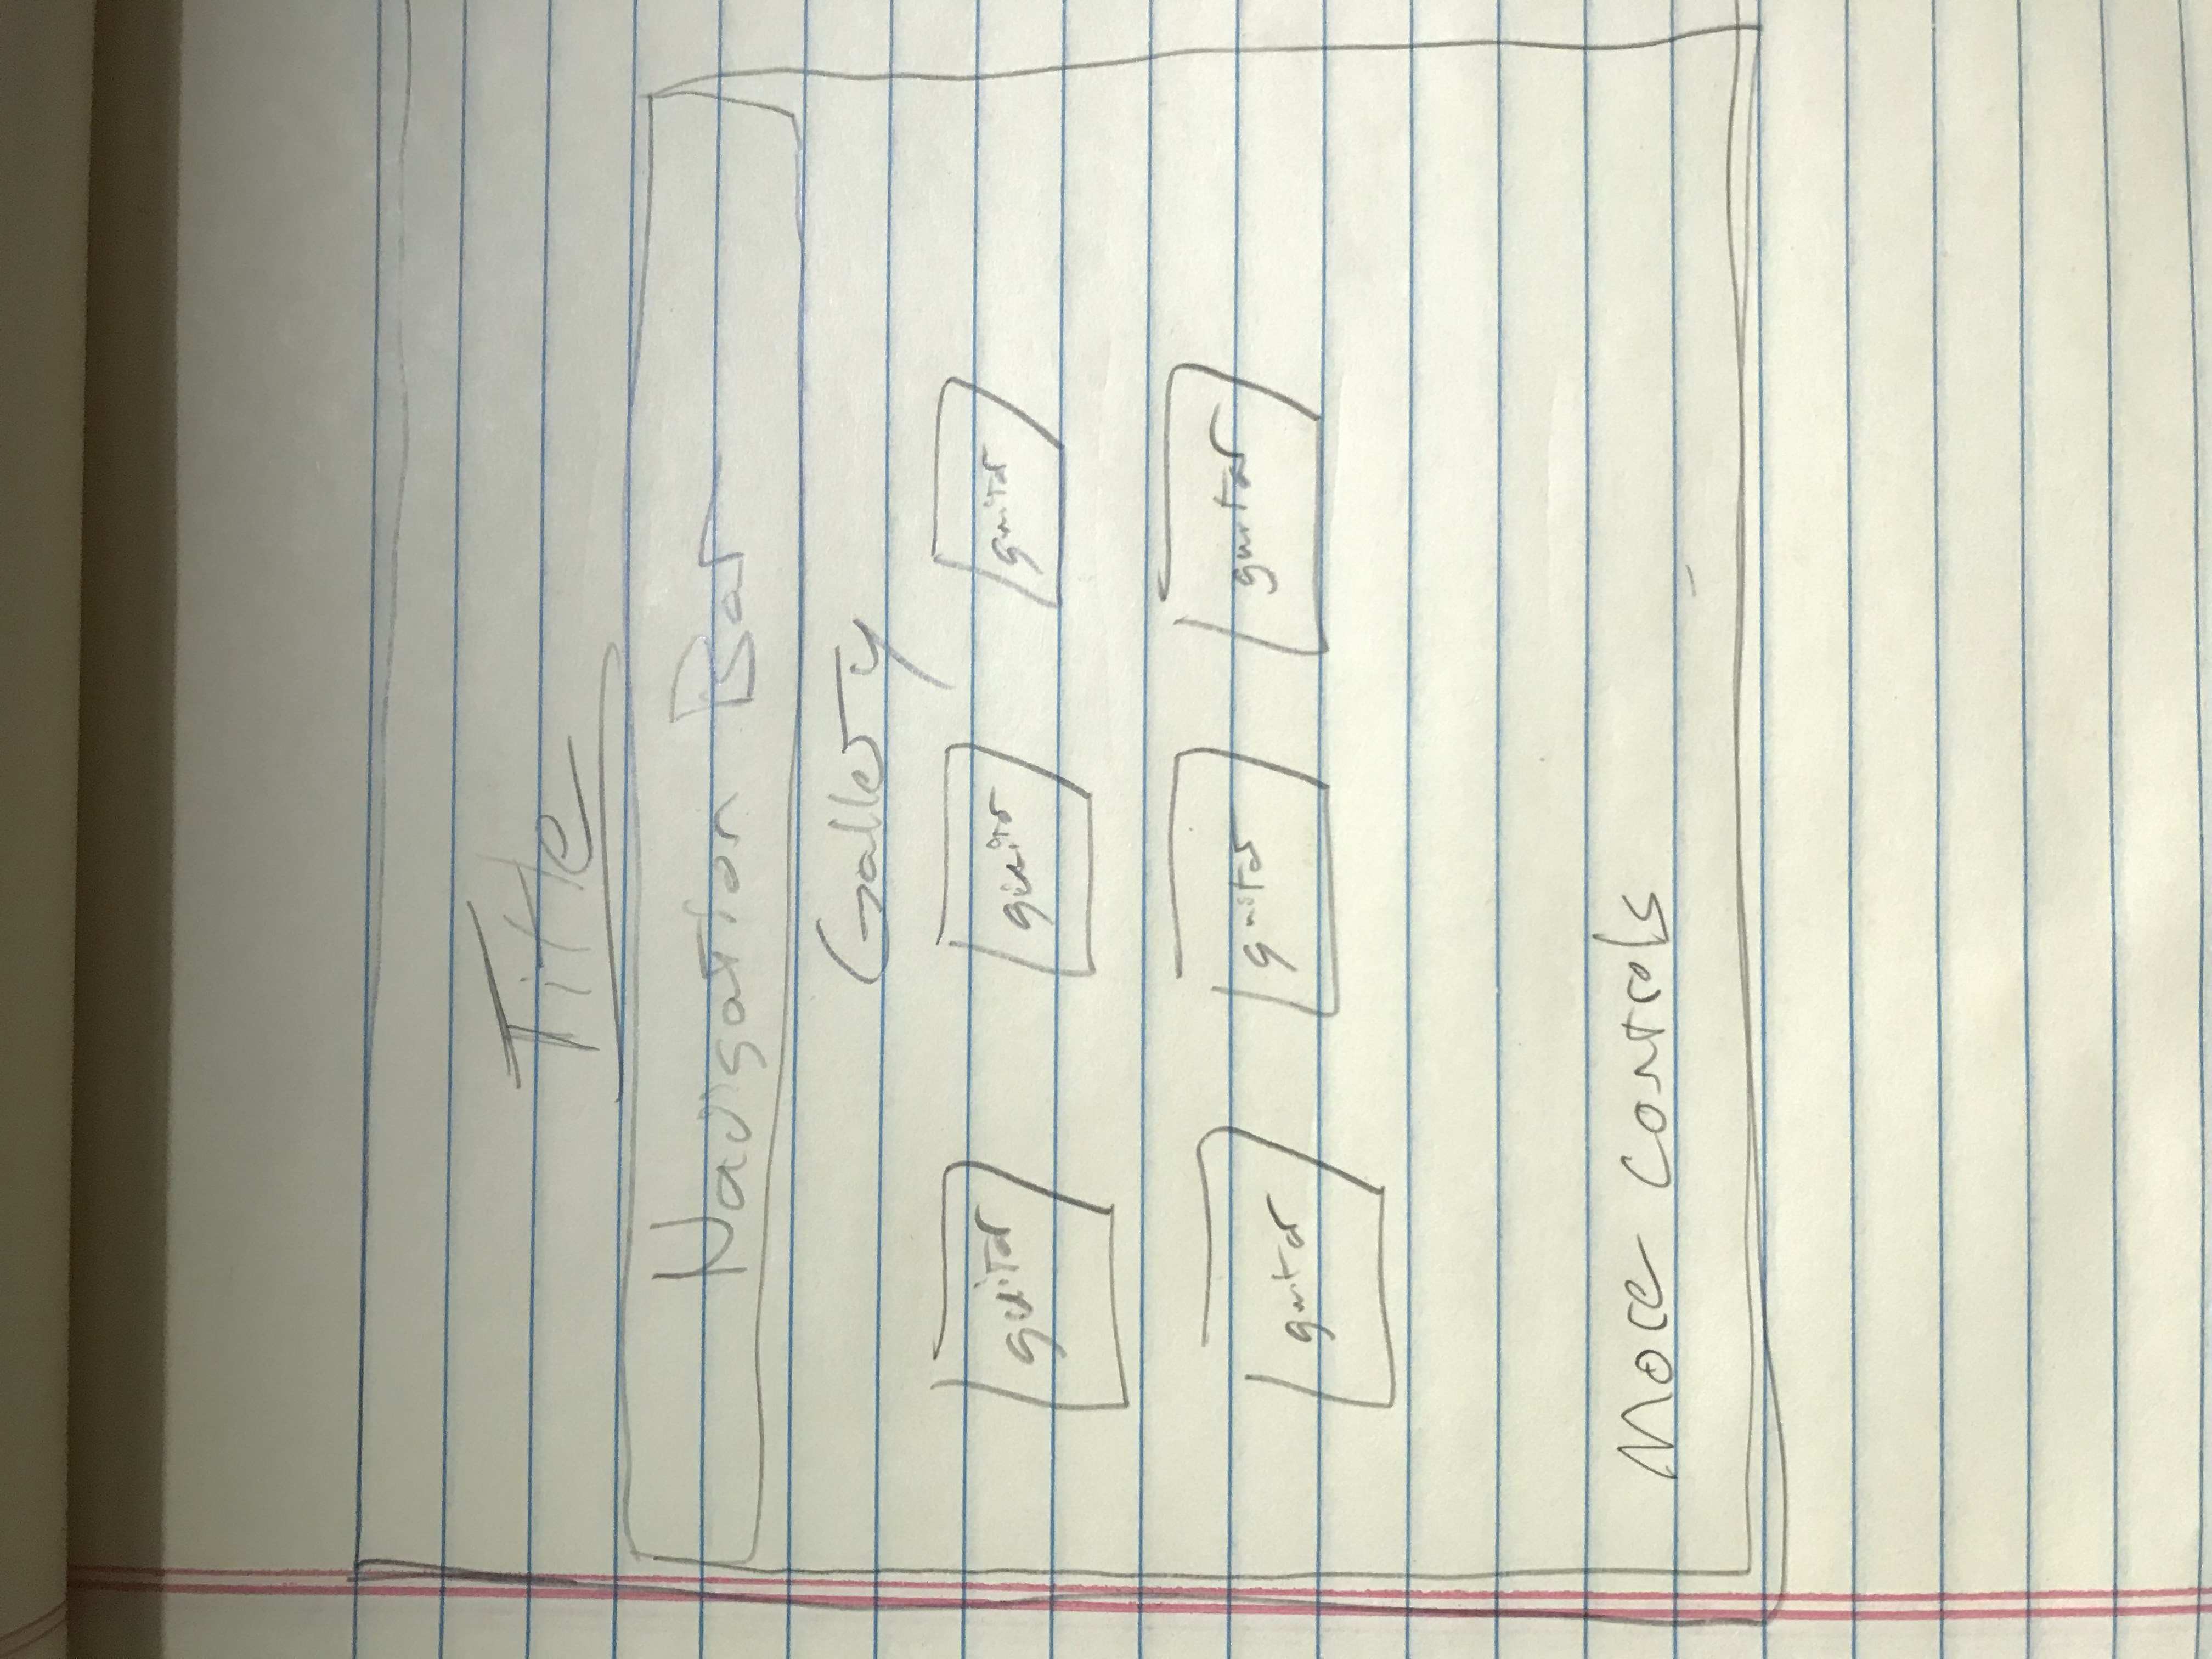 Title
Navigation Bar
Gallery
guitar guitar guitar
guitar guitar guitar
More controls